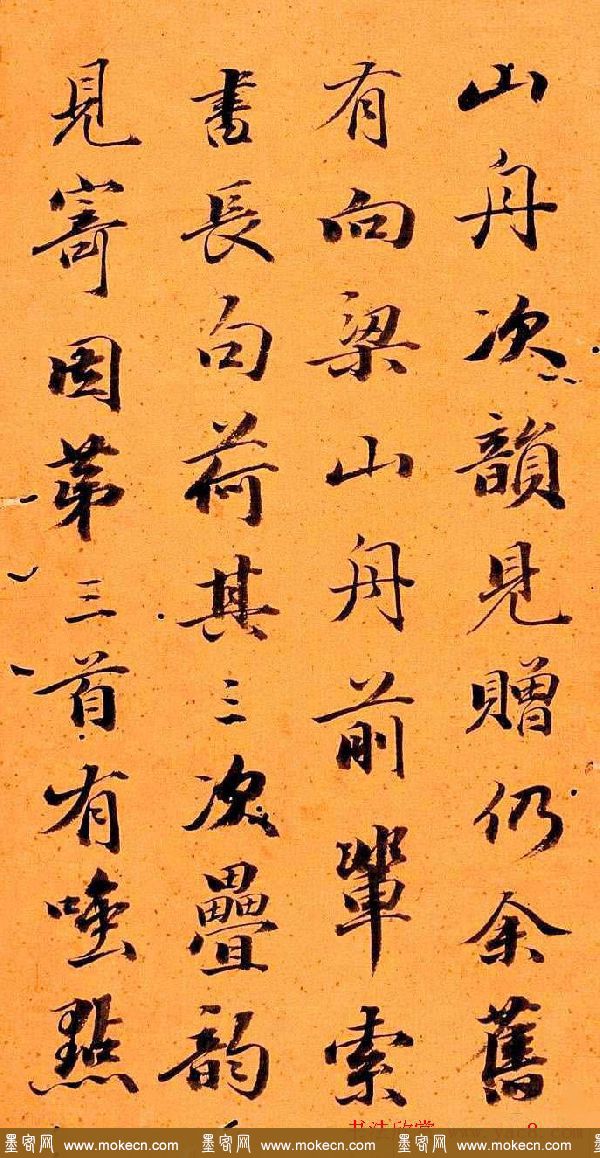 山舟次韻見贈仍余舊
有向梁山舟前輩索
書長句荷其三次疊韵
見寄因第三首有嗤點
书法欣赏
墨客网 www.mokecn.com 墨客网 www.mokecn.com 墨客网 www.mokecn.com